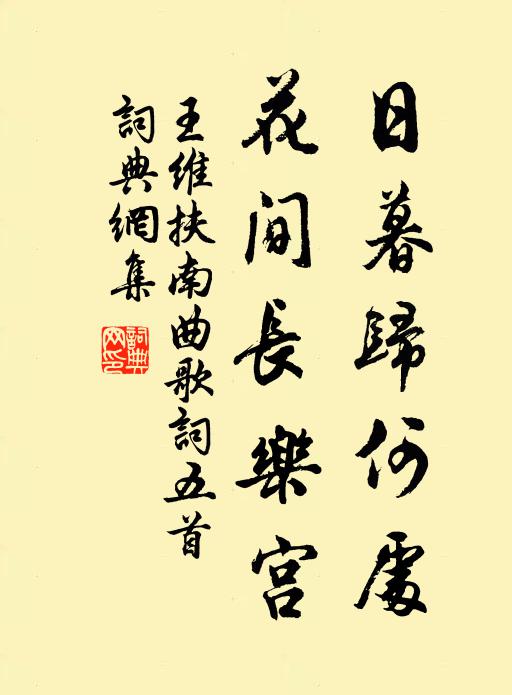 日暮歸何處
花間長樂宮
王維扶南曲歌詞五首
詞典網集
詞典網印